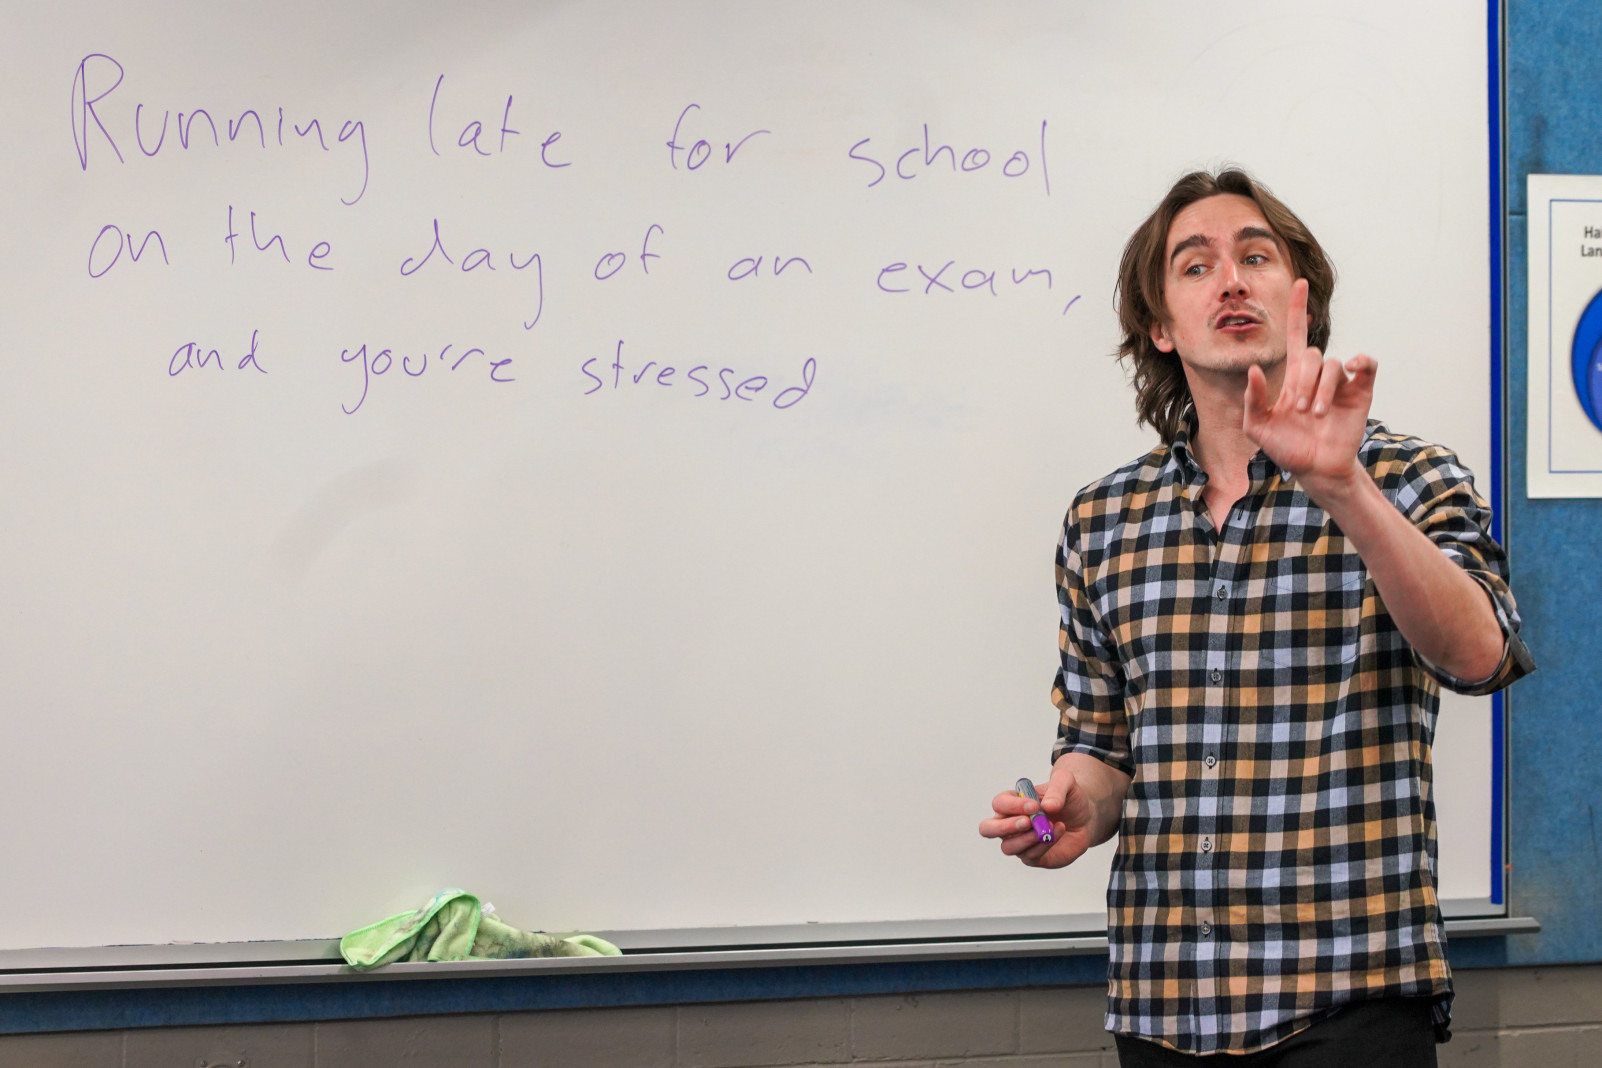 Running late for school
on the day of an exam,
and you're stressed
Ha
Lan